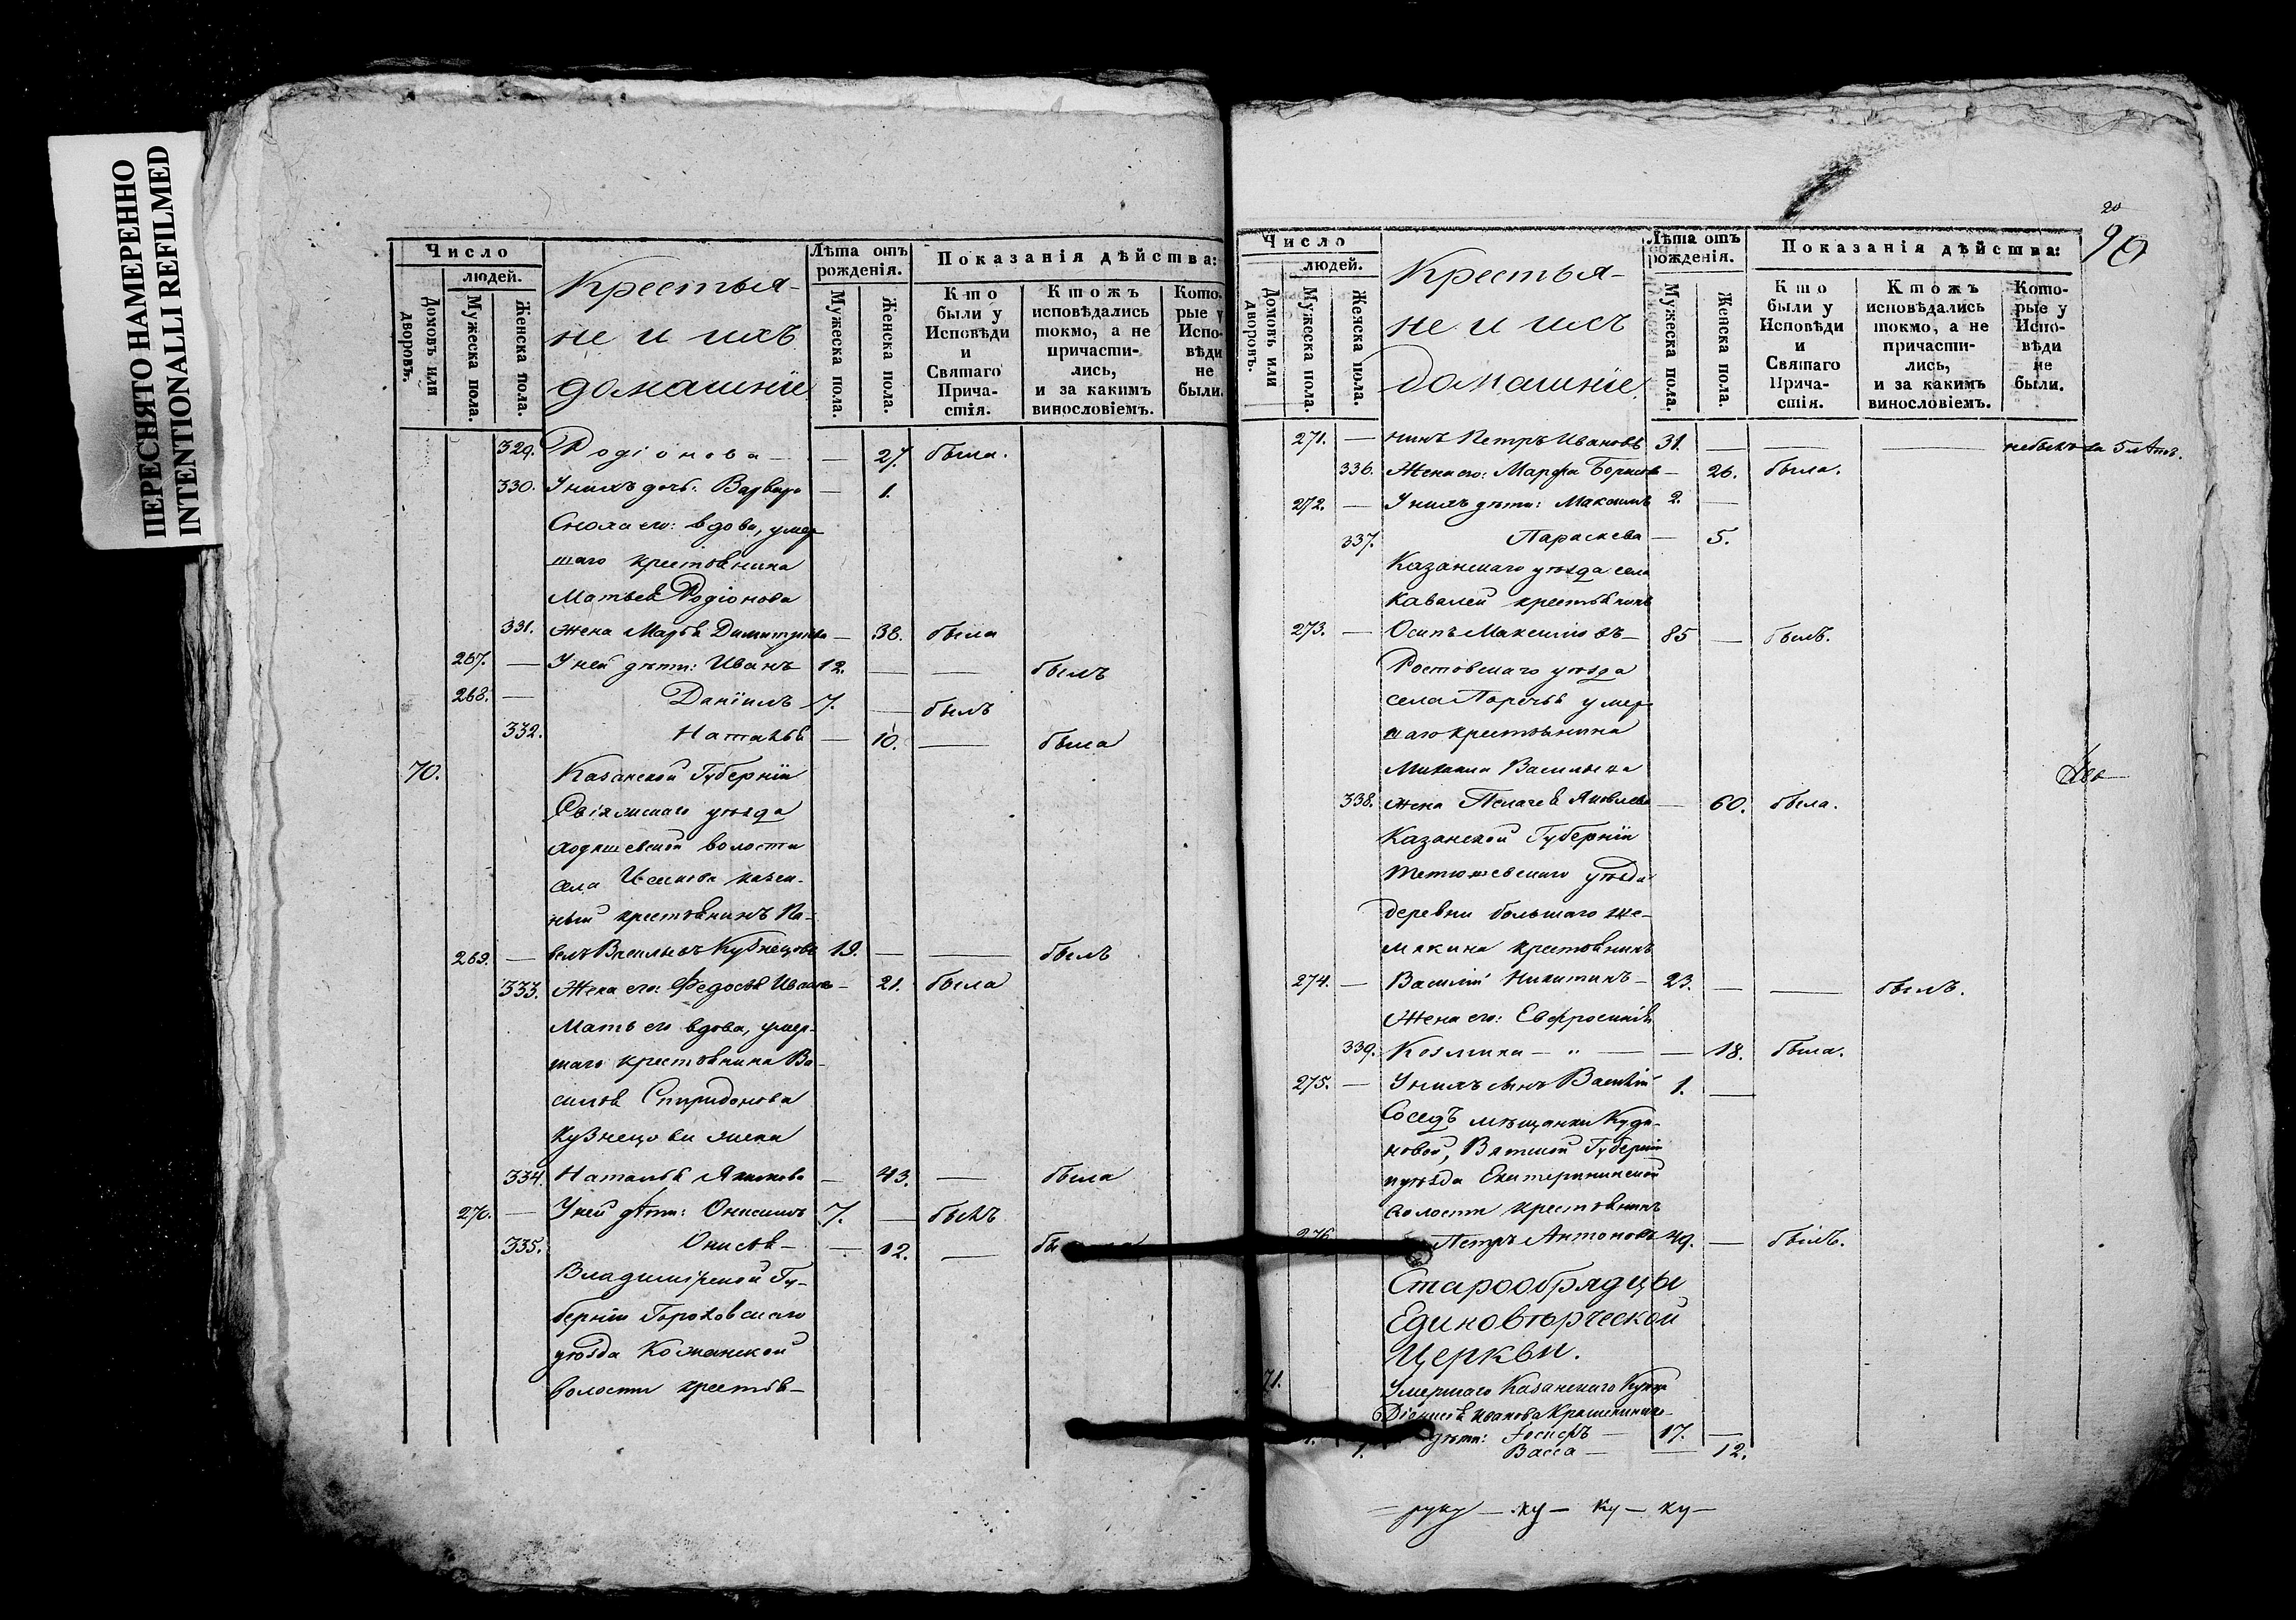 ПЕРЕСНЯТО НАМЕРЕННО
INTENTIONALLI REFILMED
Число
людей.
Домовъ или дворовъ.
Мужеска пола.
Женска пола.
Крестья-
не и ихъ
домашніе
Лѣта отъ рожденія.
Мужеска пола.
Женска пола.
Показанія дѣйства:
Кто были у Исповѣди и Святаго Причастія.
Ктожъ исповѣдались токмо, а не причастились, и за какимъ винословіемъ.
Которые у Исповѣди не были.
329. Родіонова — — 27. была.
330. У нихъ дочь: Варвара — 1.
Сноха его: вдова, умер
шаго крестьянина
Матвея Родіонова
331. жена Марья Димитріева — 38. была
267. — У ней дѣти: Иванъ 12. — — былъ
268. — Даніилъ 7. — былъ
332. Наталья — 10. — была
70. Казанской Губерніи
Свіяжскаго уѣзда
волости
села казен-
ный крестьянинъ Па-
269. — велъ Васильевъ Кузнецовъ 19. — — былъ
333. Жена его: Федосья Иванова — 21. была
Мать его вдова, умер-
шаго крестьянина Ва-
силья Спиридонова
Кузнецова жена
334. Наталья — 43. — была
270. — У ней дѣти: Онисимъ 7. — былъ
335. — — 12. —
Владимірской Гу-
берніи Гороховскаго
уѣзда Кожинской
волости крестья-
20
90
Число
людей.
Домовъ или дворовъ.
Мужеска пола.
Женска пола.
Крестья-
не и ихъ
домашніе.
Лѣта отъ рожденія.
Мужеска пола.
Женска пола.
Показанія дѣйства:
Кто были у Исповѣди и Святаго Причастія.
Ктожъ исповѣдались токмо, а не причастились, и за какимъ винословіемъ.
Которые у Исповѣди не были.
271. — нинъ Петръ Ивановъ 31. — — — небылъ
336. Жена его: Марфа Борисова — 26. была.
272. — У нихъ дѣти: Максимъ 2. —
337. Параскева — 5.
Казанскаго уѣзда села
Кавалей крестьянинъ
273. — Осипъ Максимовъ — 85 — былъ.
Ростовскаго уѣзда
села Поречья умер
шаго крестьянина
Михаила Васильева
338. жена Пелагея Яковлева — 60. была.
Казанской Губерніи
Тетюшевскаго уѣзда
деревни большаго Ше-
мякина крестьянинъ
274. — Василій Никитинъ — 23. — — былъ.
Жена его: Евфросинія
339. Козмина — „ — — 18. была.
275. — У нихъ сынъ Василій 1. —
Соседъ мѣщанки Куди-
новой, Вятской Губерніи
и уѣзда Екатерининской
волости крестьянинъ
276. Петръ Антоновъ 49. — былъ.
Старообрядцы
Единовѣрческой
Церкви.
71. Умершаго Казанскаго Купца
Діонисія Иванова Крашениникова
дѣти: Іосифъ — 17. —
1. Васса — — 12.
— ку — ку — ку —